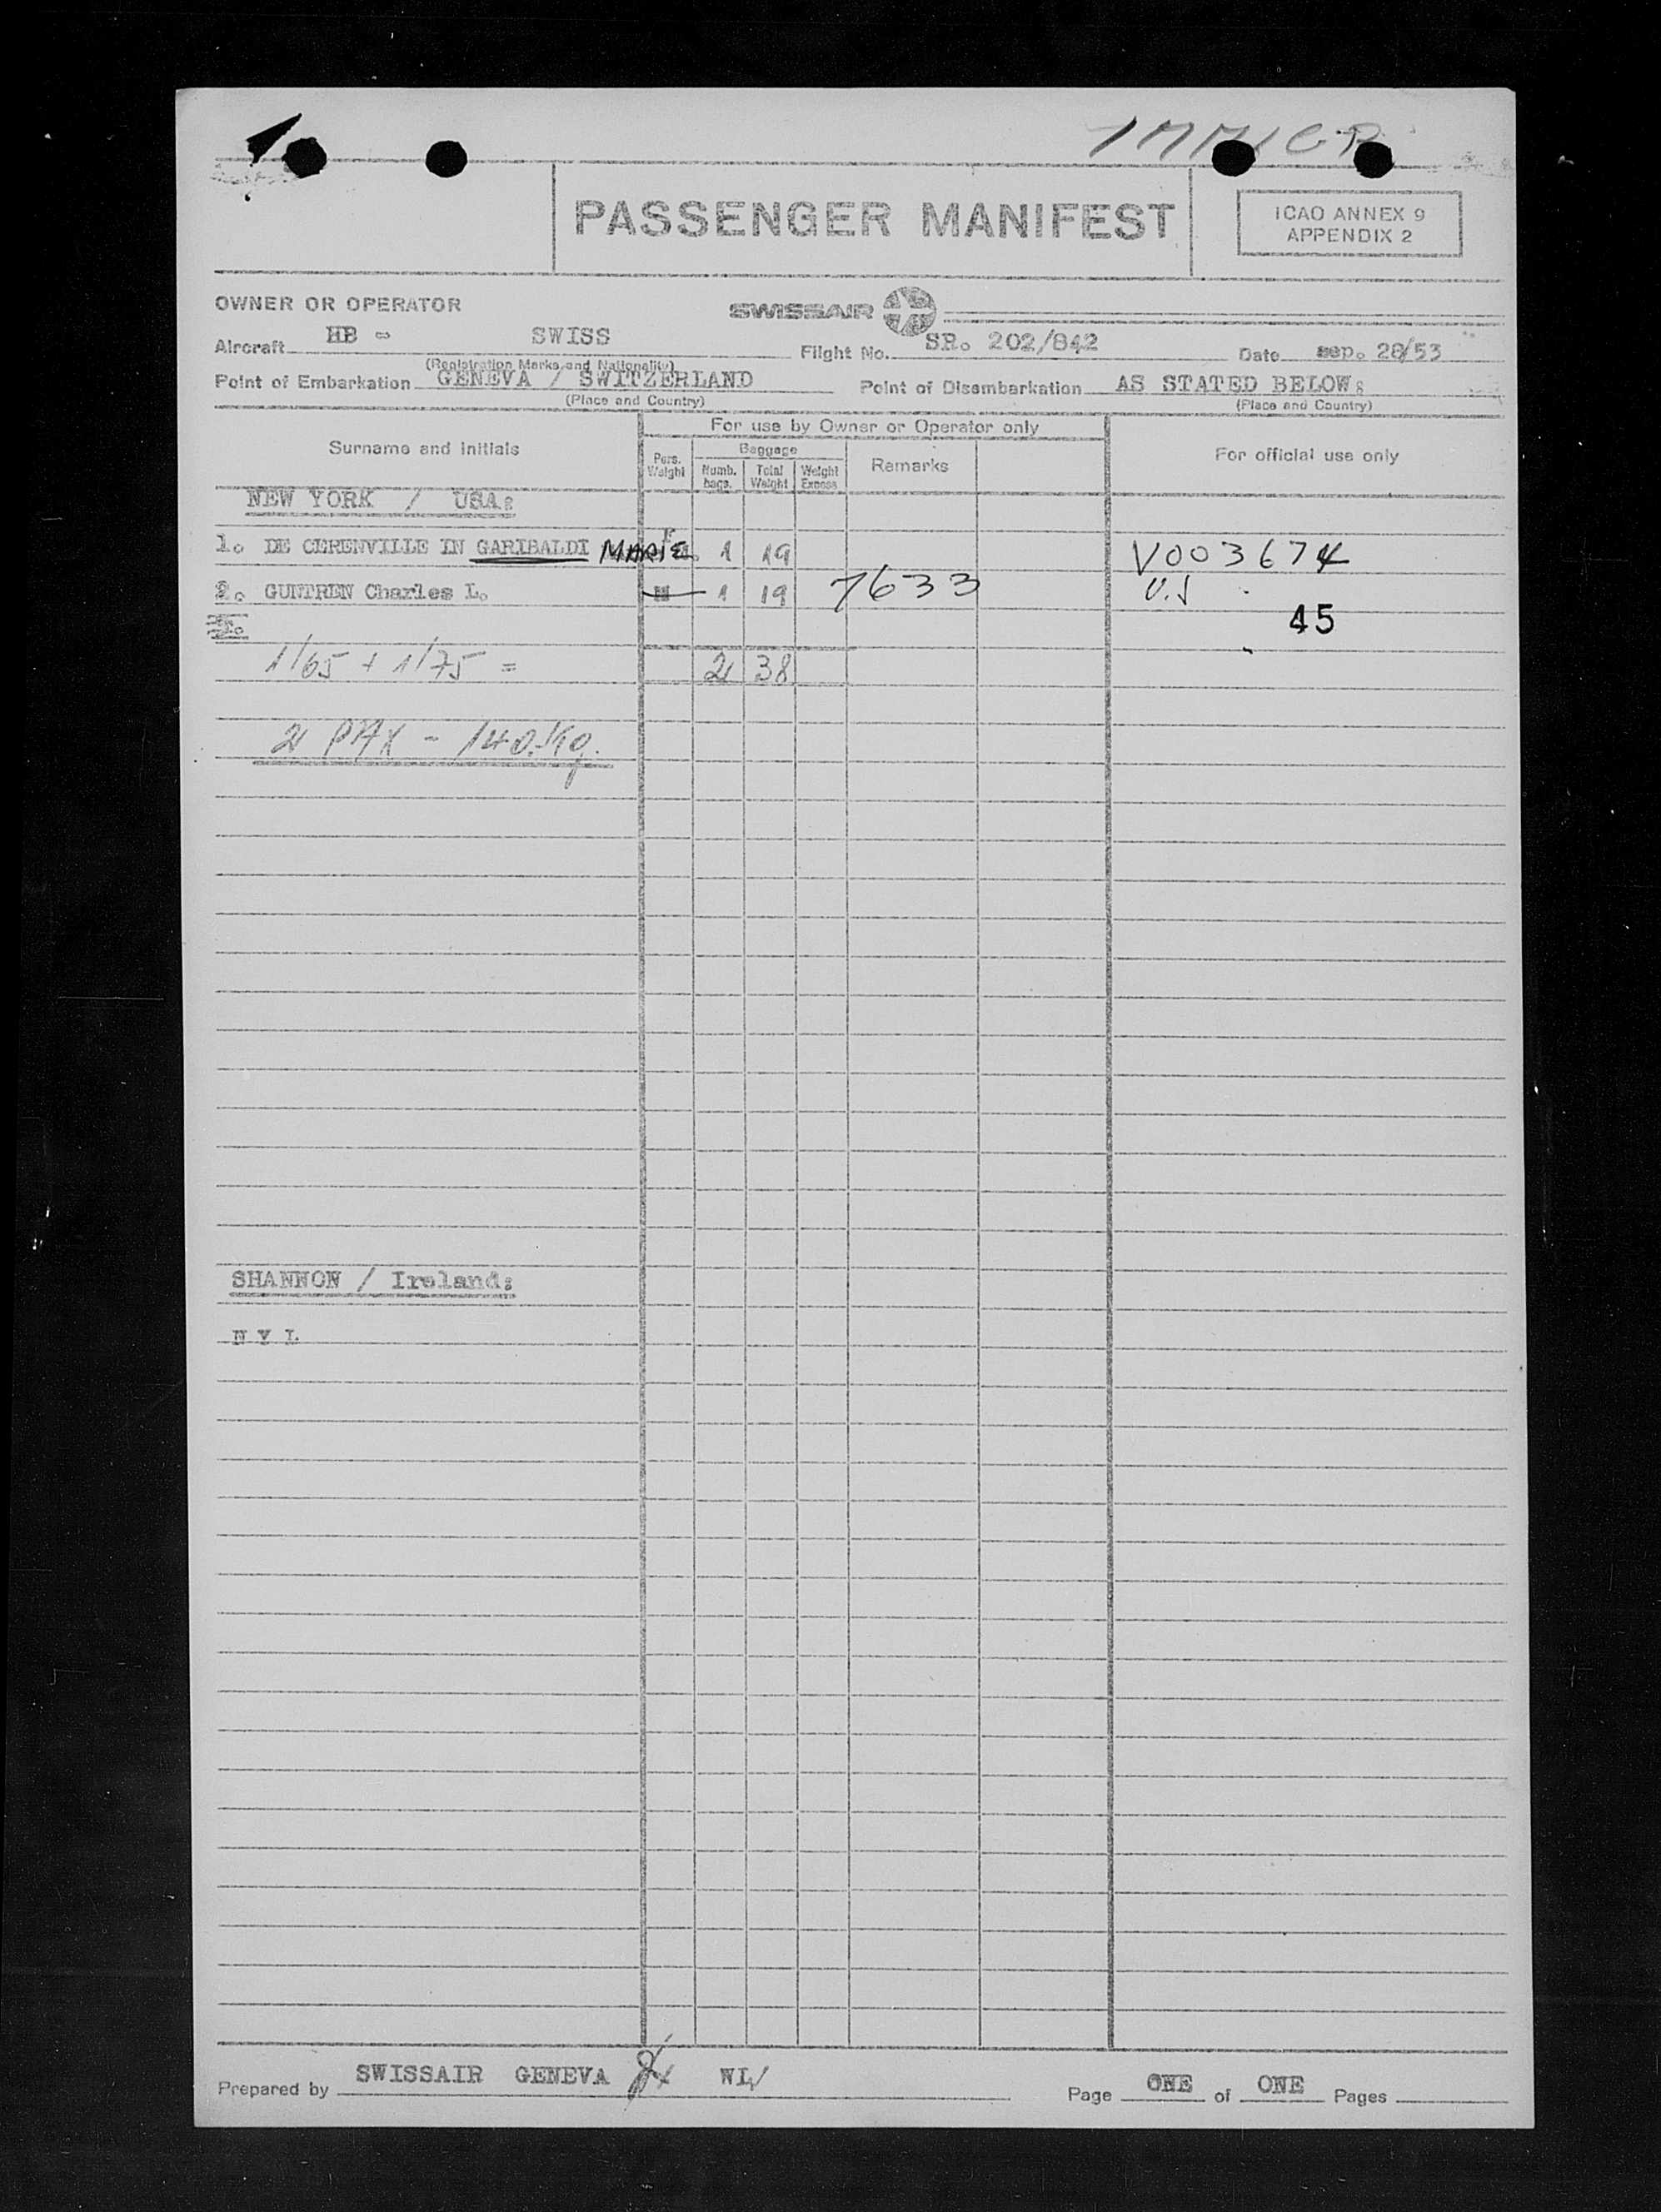 IMMIGR
PASSENGER MANIFEST
ICAO ANNEX 9
APPENDIX 2
OWNER OR OPERATOR SWISSAIR
Aircraft HB - SWISS Flight No. SR. 202/842 Date sep. 28/53
(Registration Marks and Nationality)
Point of Embarkation GENEVA / SWITZERLAND Point of Disembarkation AS STATED BELOW:
(Place and Country) (Place and Country)
For use by Owner or Operator only
Surname and initials Pers. Weight Baggage Numb. bags. Total Weight Weight Excess Remarks For official use only
NEW YORK / USA:
1. DE CERENVILLE IN GARIBALDI MARIE 1 19 V003674
2. GUNTREN Charles L. 1 19 7633 U.S
45
1/65 + 1/75 = 2 38
2 PAX - 140.Kg.
SHANNON / Ireland:
Prepared by SWISSAIR GENEVA WL/ Page ONE of ONE Pages